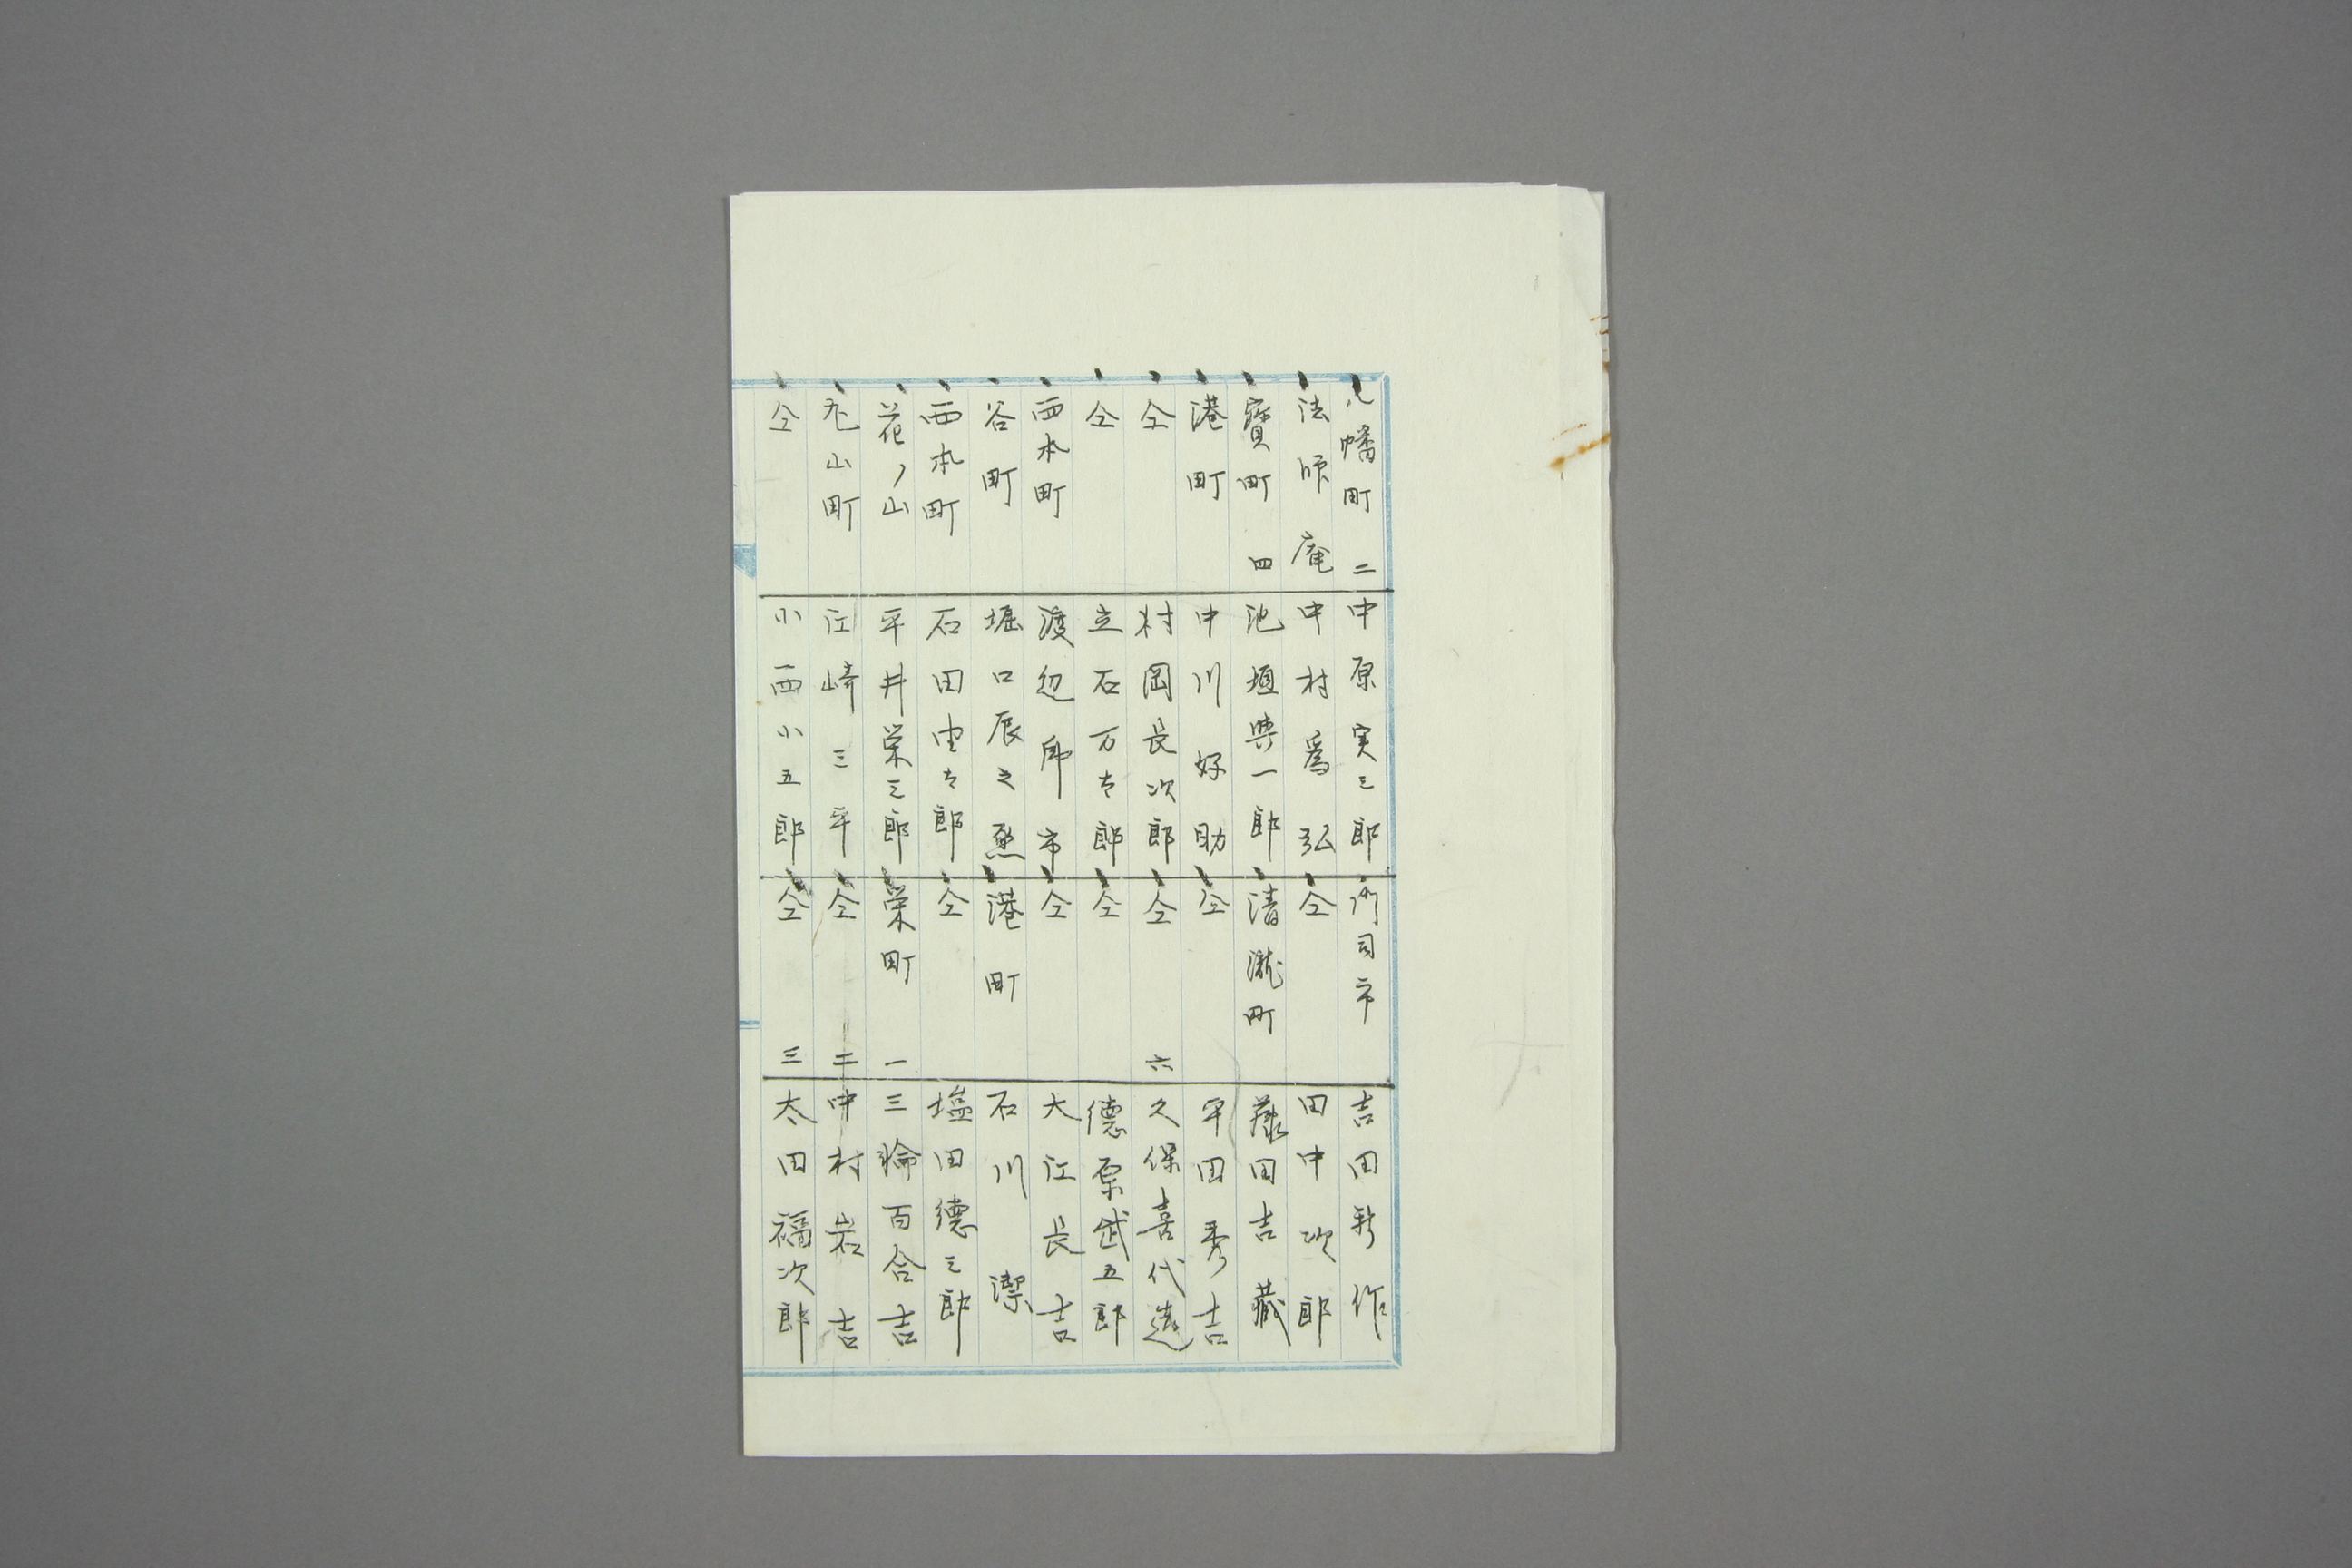 八幡町 二 中原実三郎
法師庵 中村為弘
寳町 四 池垣興一郎
港町 中川好助
仝 村岡長次郎
仝 立石万吉郎
西本町 渡辺市
谷町 堀口辰之
西本町 石田吉郎
花ノ山 平井栄三郎
丸山町 江崎三平
仝 小西小五郎
門司市 吉田新作
仝 田中次郎
清瀧町 藤田吉藏
仝 平田秀吉
仝 六 久保喜代造
仝 德原武五郎
仝 大江長吉
港町 石川潔
仝 塩田德三郎
栄町 一 三輪百合吉
仝 二 中村岩吉
仝 三 太田福次郎